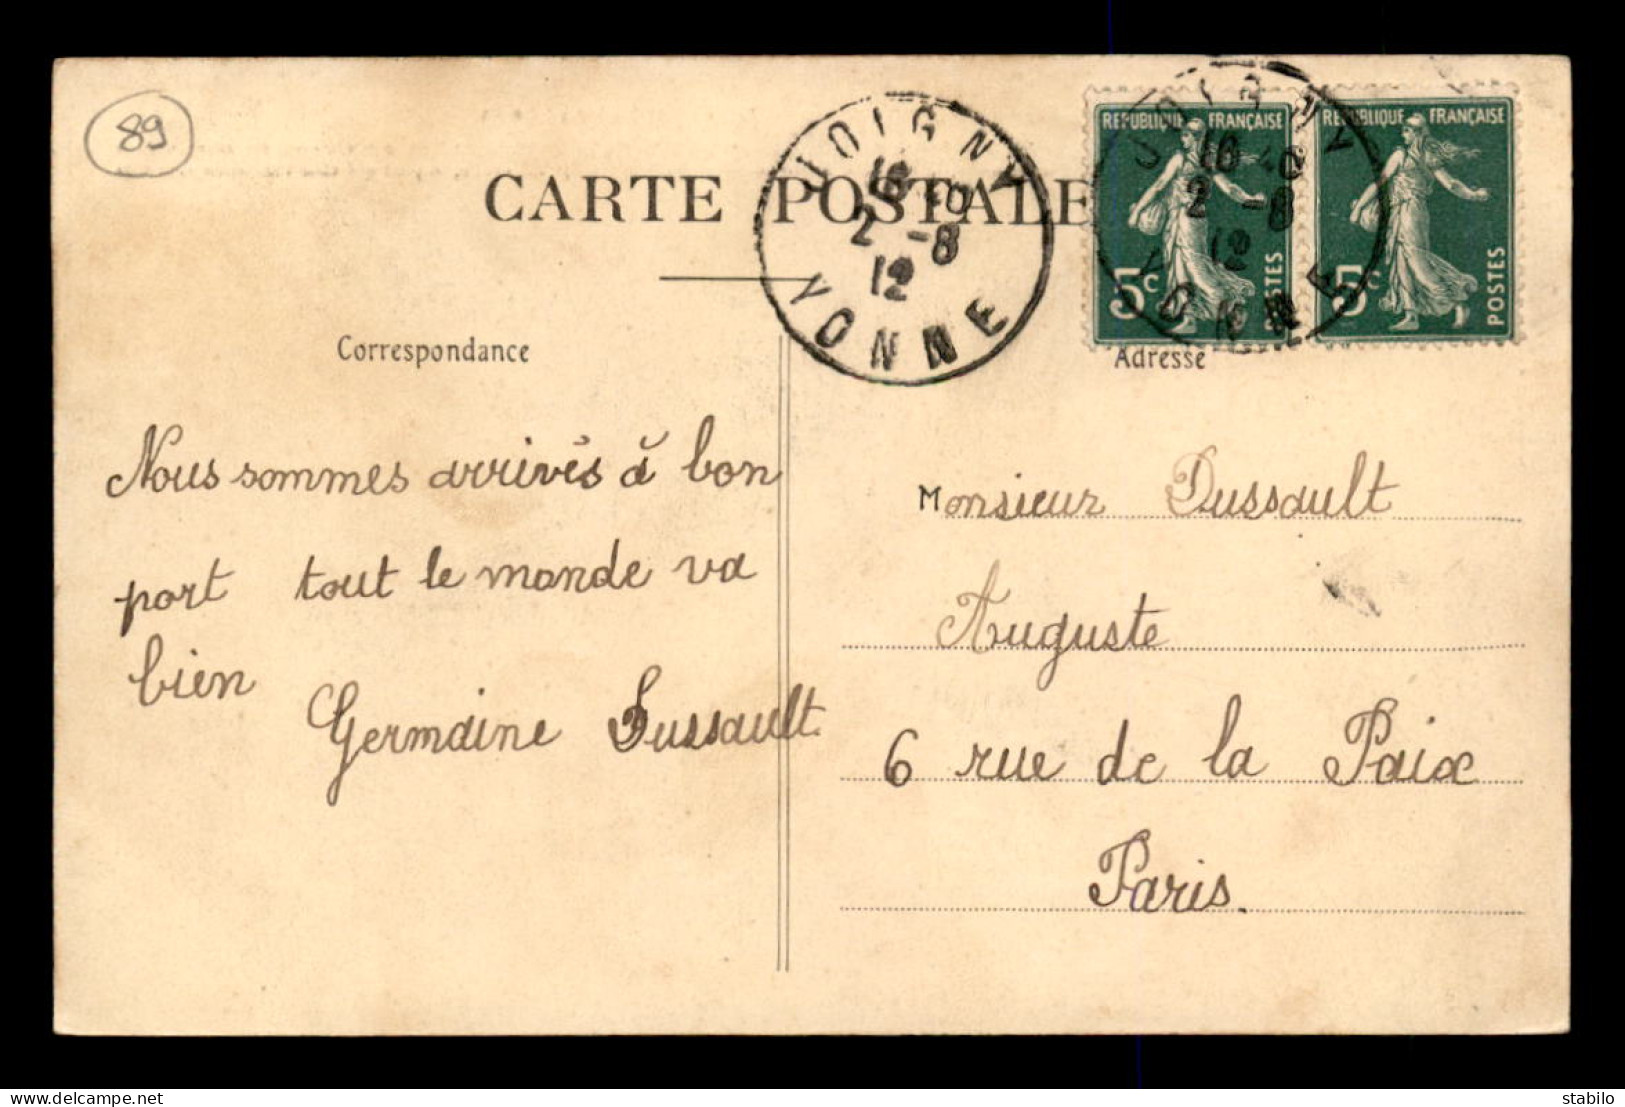 89
CARTE POSTALE
JOIGNY
16 40
2 -8
12
YONNE
RÉPUBLIQUE FRANÇAISE
5c
POSTES
RÉPUBLIQUE FRANÇAISE
5c
POSTES
JOIGNY
16 40
2 -8
12
YONNE
Correspondance
Adresse
Nous sommes arrivés à bon
port tout le monde va
bien
Germaine Dussault.
Monsieur Dussault
Auguste
6 rue de la Paix
Paris.
www.delcampe.net
stabilo